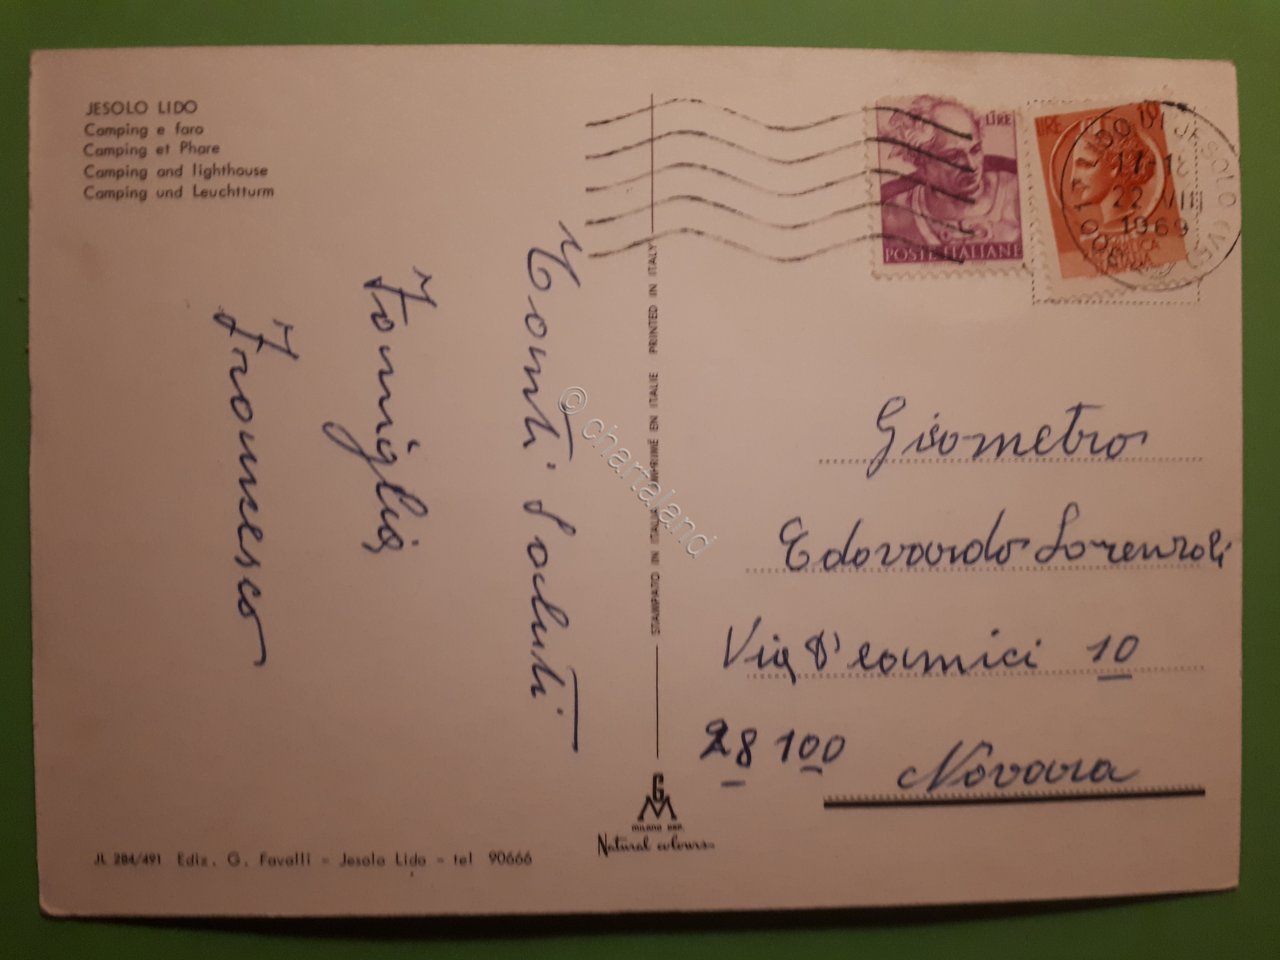 JESOLO LIDO
Camping e faro
Camping et Phare
Camping and lighthouse
Camping und Leuchtturm
Tanti Saluti
Famiglia
Francesco
STAMPATO IN ITALIA IMPRIMÉ EN ITALIE PRINTED IN ITALY
© chartaland
LIRE
POSTE ITALIANE
LIRE
LIDO DI JESOLO (VE)
17-18
22 VIII
1969
Geometra
Edoardo Lorenzoli
Via D'eamici 10
28100 Novara
GM
MILANO DEP.
Natural colours
JL 284/491 Ediz. G. Favalli - Jesolo Lido - tel 90666